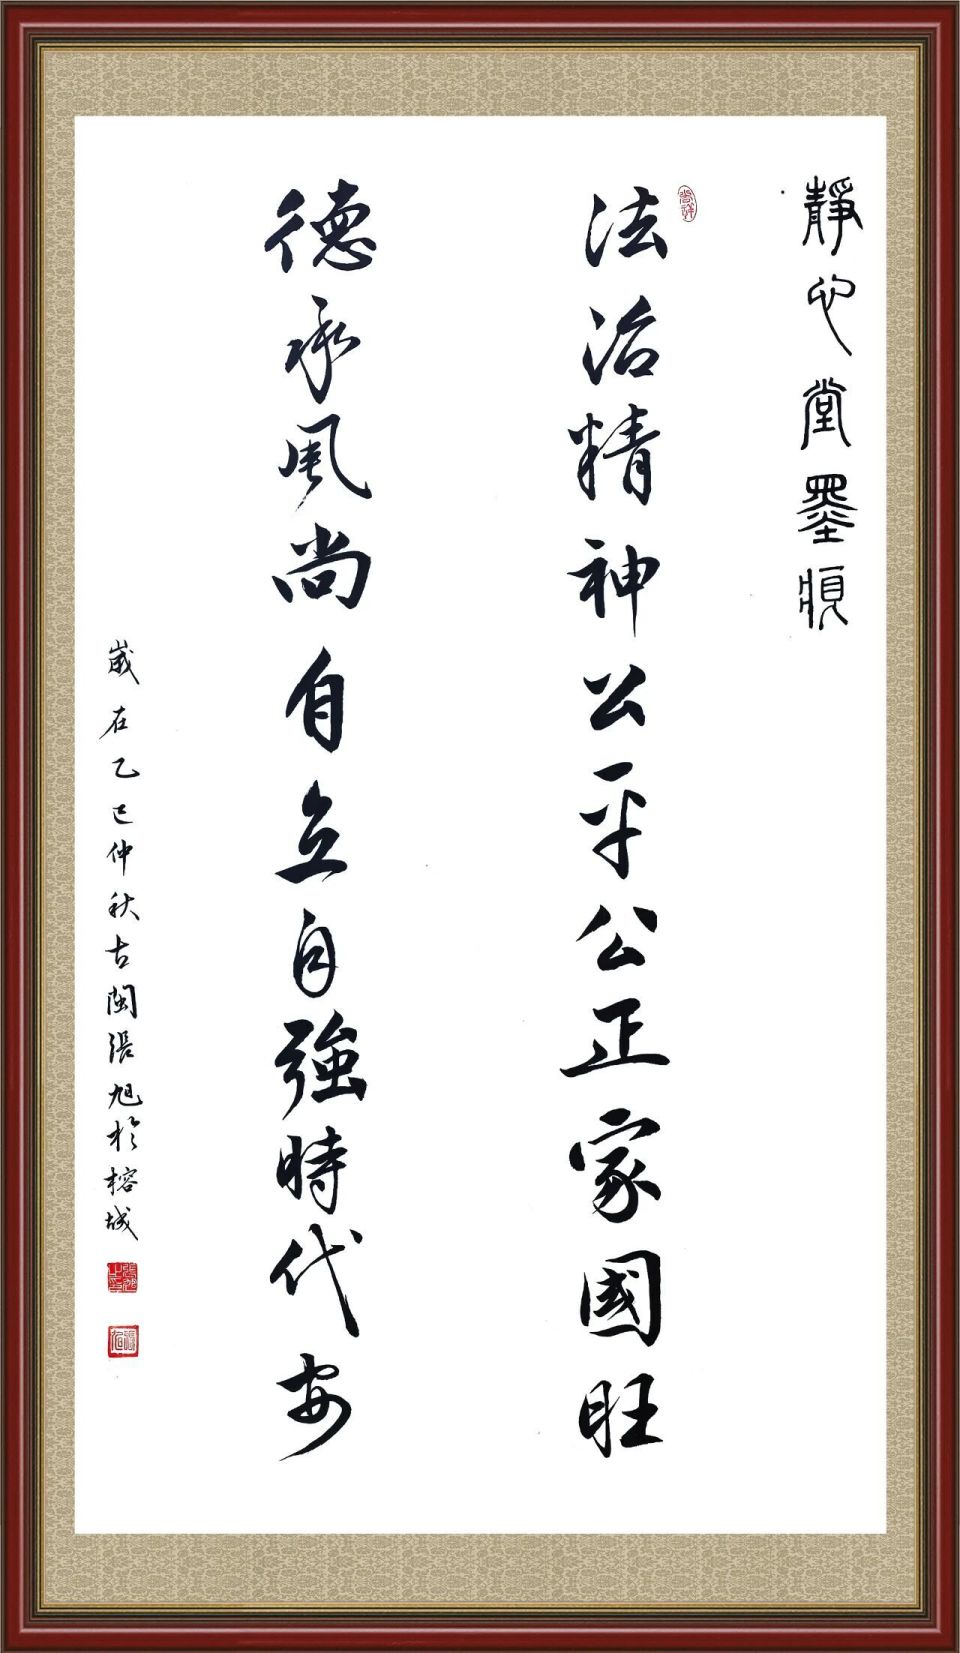 靜心堂墨痕
法治精神公平公正家國旺
德承風尚自立自強時代安
歲在乙巳仲秋古閩張旭於榕城